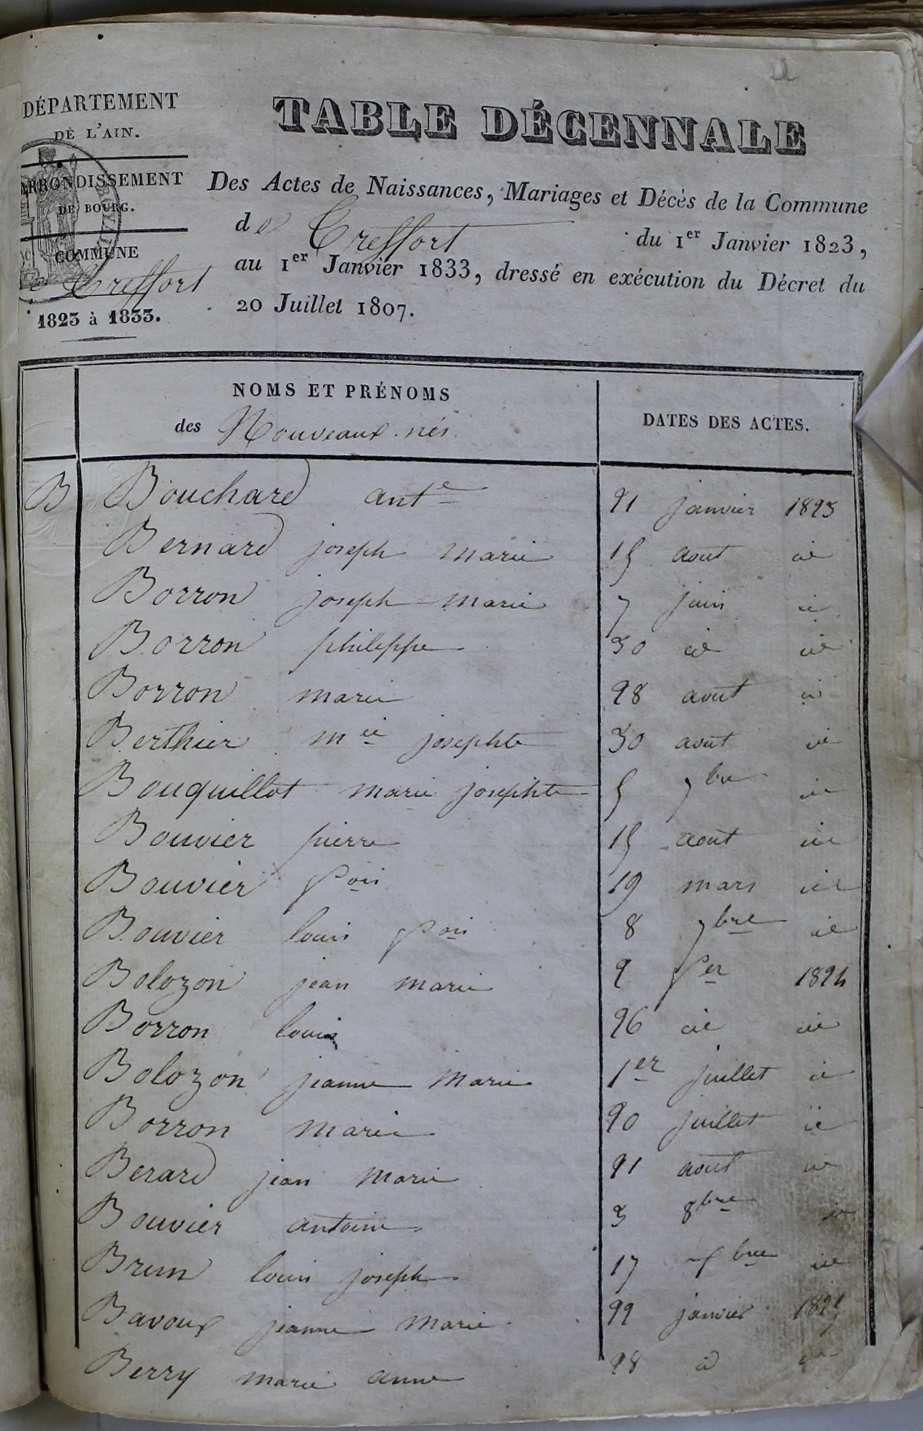 DÉPARTEMENT
DE L'AIN.
ARRONDISSEMENT
DE BOURG.
COMMUNE
de Treffort
1823 à 1833.
TABLE DÉCENNALE
Des Actes de Naissances, Mariages et Décès de la Commune
de Treffort du 1er Janvier 1823,
au 1er Janvier 1833, dressé en exécution du Décret du
20 Juillet 1807.
NOMS ET PRÉNOMS
des Nouveaux-nés.
DATES DES ACTES.
B Bouchard ante 21 janvier 1823
Bernard joseph marie 15 aout id
Borron joseph marie 7 juin id
Borron philippe 30 id id
Borron marie 28 aout id
Berthier mie josephte 30 aout id
Bouquillot marie josephte 5 7bre id
Bouvier pierre 15 aout id
Bouvier fois 19 mars id
Bouvier louis fois 8 9bre id
Bolozon jean marie 2 fer 1824
Borron louis 26 id id
Bolozon jeanne marie 1er juillet id
Borron marie 20 juillet id
Berard jean marie 21 aout id
Bouvier antoine 3 8bre id
Brun louis joseph 17 bre id
Bavoux jeanne marie 22 janvier 1825
Berry marie anne 28 id id